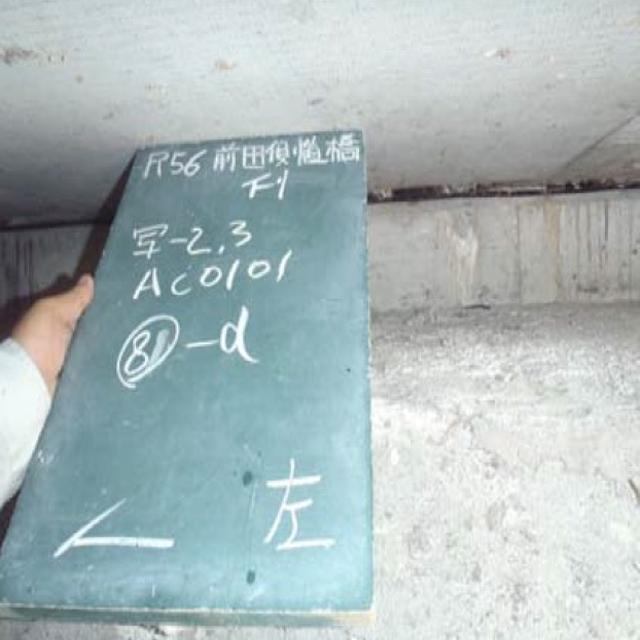 R56 前田側道橋
F1
写-2.3
AC0101
-d
左